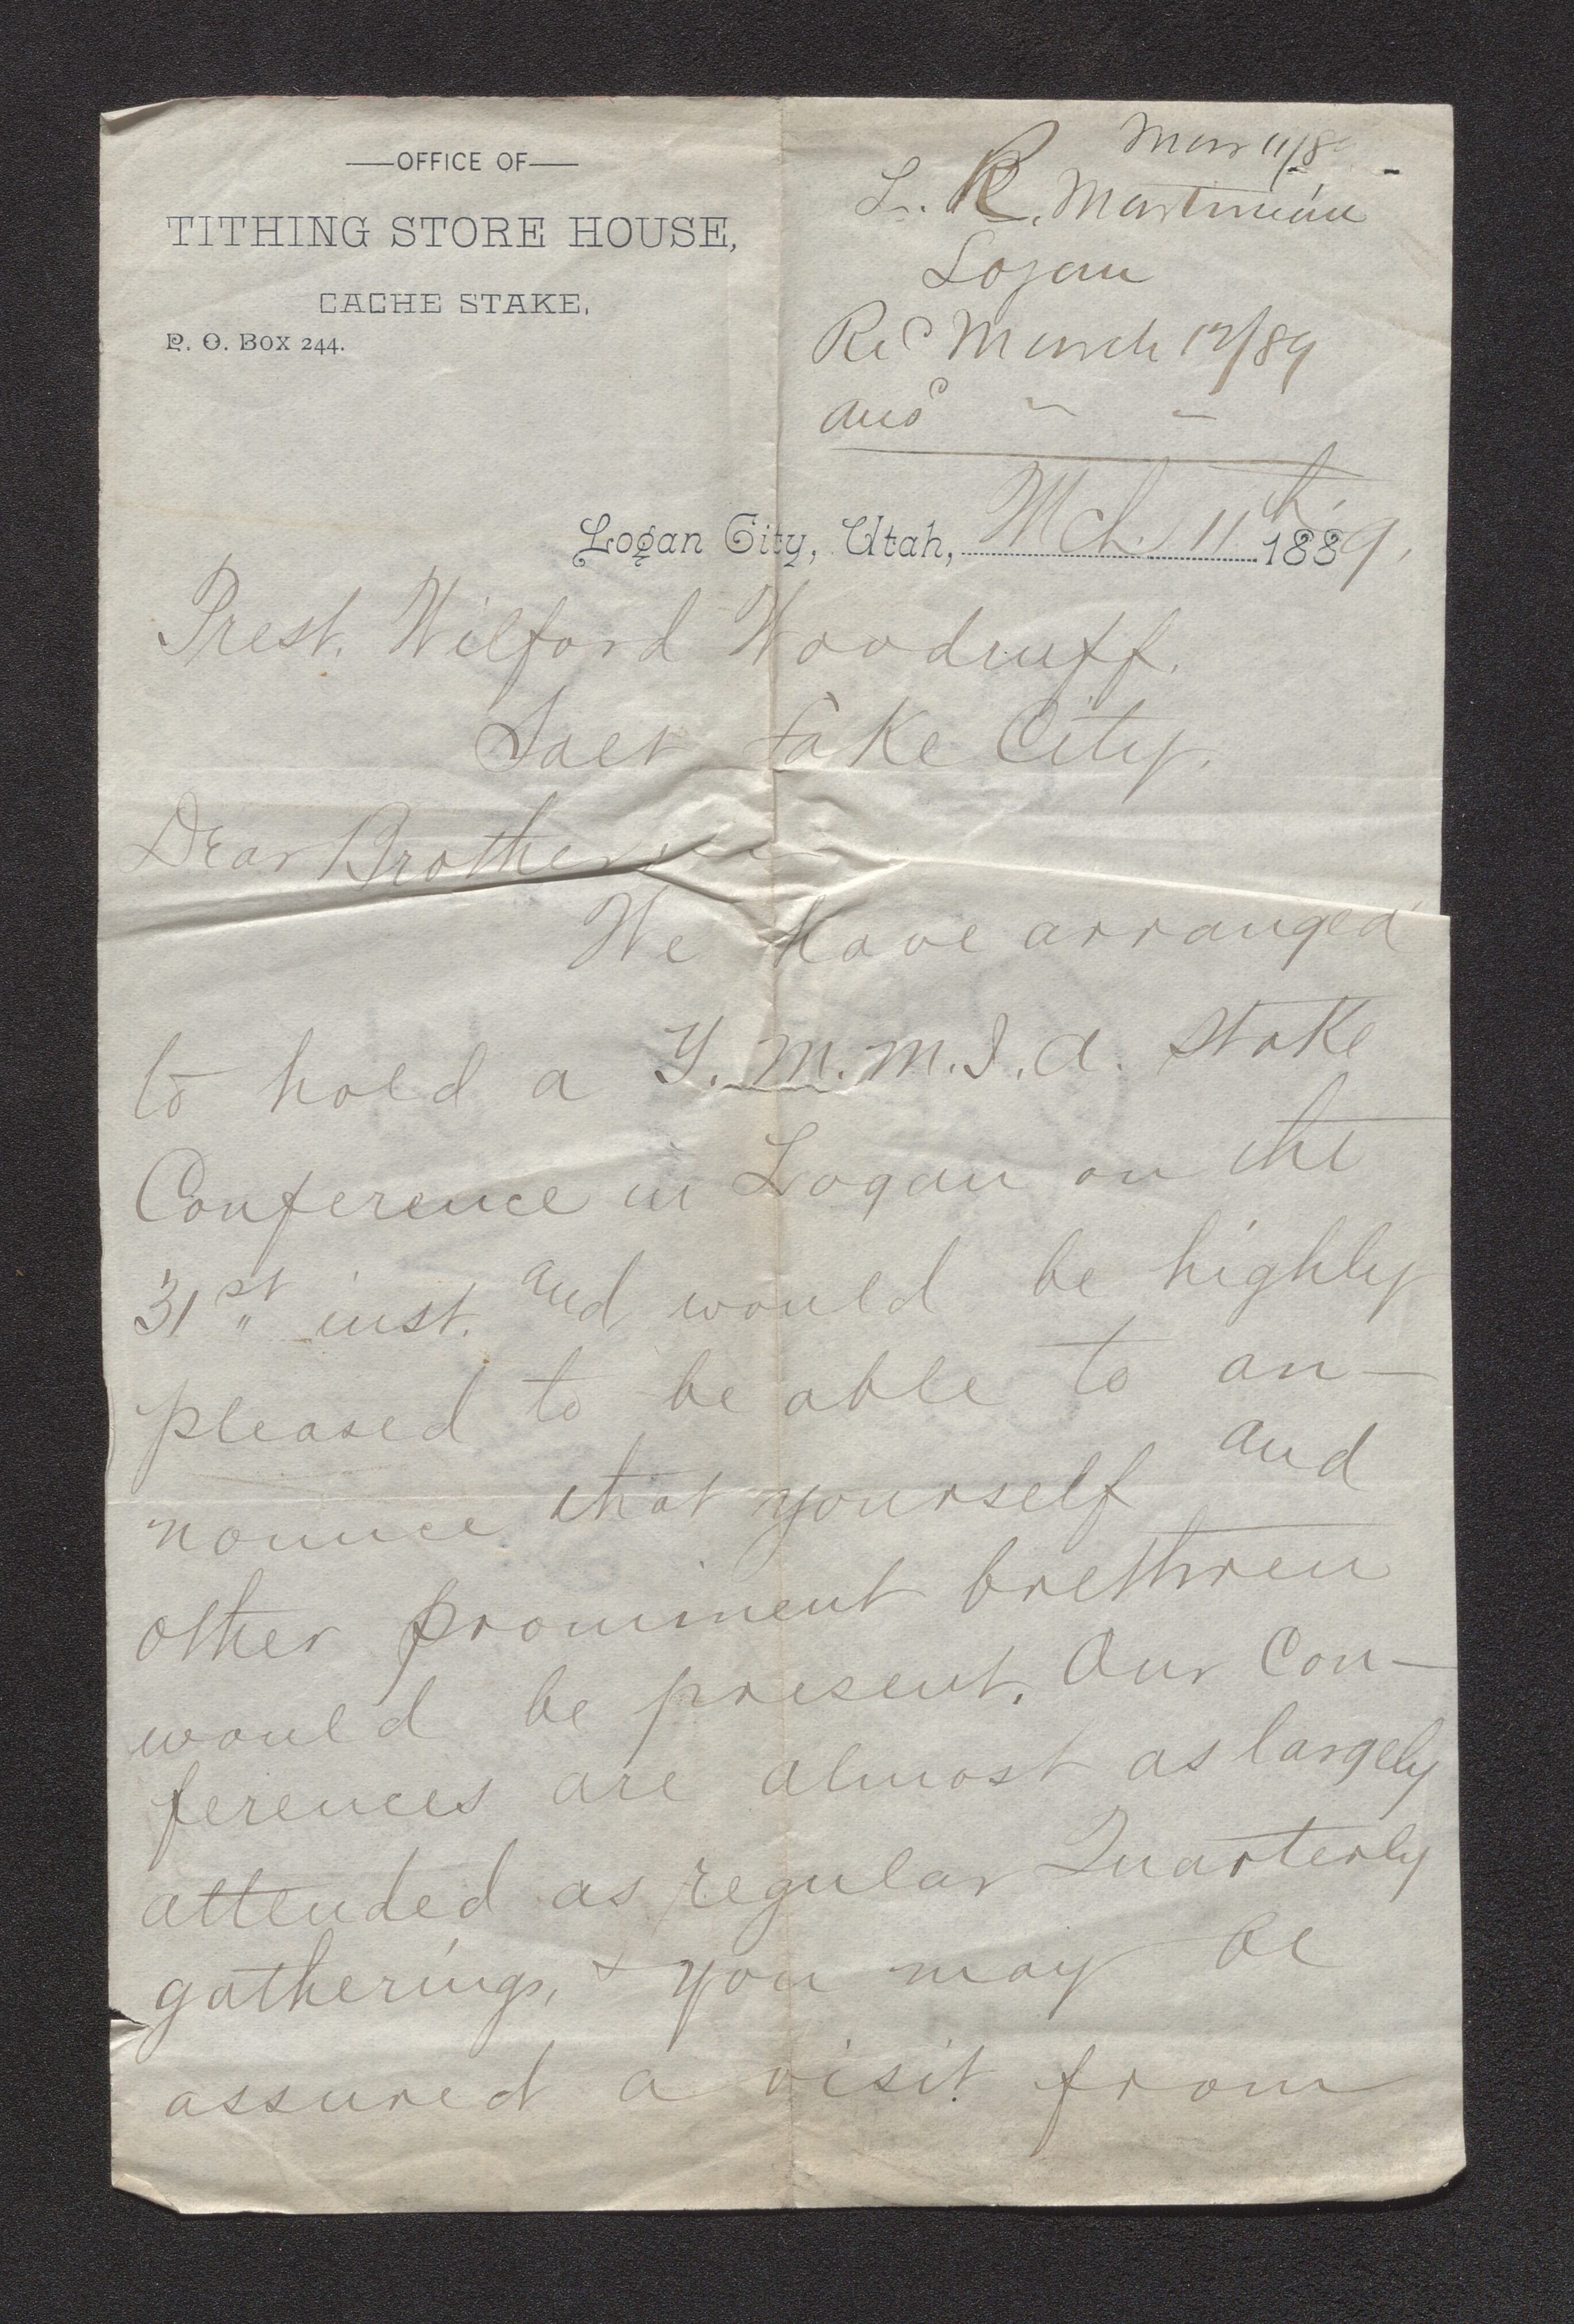 —OFFICE OF—
TITHING STORE HOUSE,
CACHE STAKE.
P. O. BOX 244.
Mar 11/8
L. R. Martineau
Logan
Recd March 12/89
ansd " "
Logan City, Utah, Mch. 11th. 1889.
Prest. Wilford Woodruff.
Salt Lake City.
Dear Brother:
We have arranged
to hold a Y. M. M. I. A. Stake
Conference in Logan on the
31st inst. and would be highly
pleased to be able to an-
nounce that yourself and
other prominent brethren
would be present. Our Con-
ferences are almost as largely
attended as regular Quarterly
gatherings, & you may be
assured a visit from